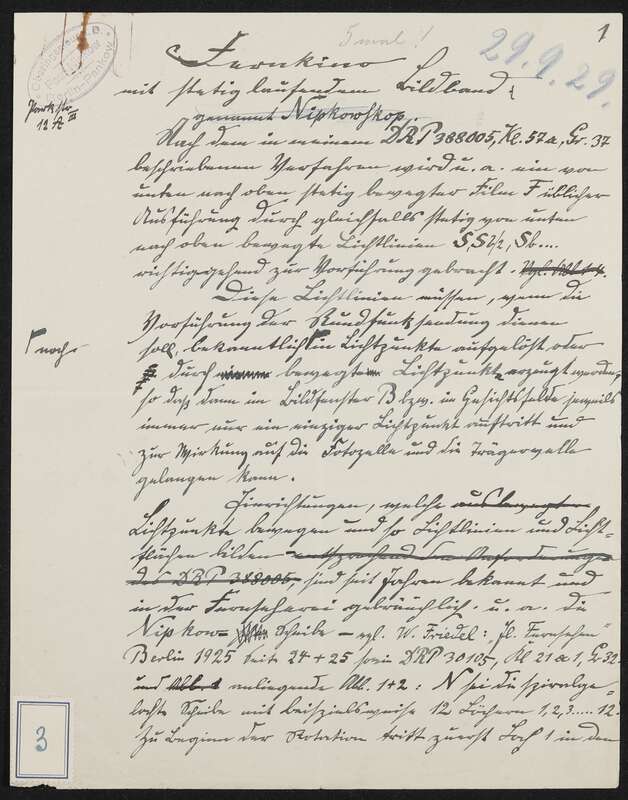 5 mal !
1
29.9.29.
Parkstr.
12 A III
Fernkino
mit stetig laufendem Bildband,
genannt Nipkowskop.
Nach dem in meinem DRP 388005, Kl. 57a, Gr. 37
beschriebenen Verfahren wird u. a. ein von
unten nach oben stetig bewegter Film F üblicher
Ausführung durch gleichfalls stetig von unten
nach oben bewegte Lichtlinien
richtiggehend zur Vorführung gebracht.
Diese Lichtlinien müssen, wenn die
Vorführung der Rundfunksendung dienen
soll, bekanntlich in Lichtpunkte aufgelöst oder
noch
durch bewegte Lichtpunkte erzeugt werden,
so daß dann im Bildfenster B bzw. im Gesichtsfelde jeweils
immer nur ein einziger Lichtpunkt auftritt und
zur Wirkung auf die Fotozelle und die Trägerwelle
gelangen kann.
Einrichtungen, welche
Lichtpunkte bewegen und so Lichtlinien und Licht-
flächen bilden
des DRP 388005, sind seit Jahren bekannt und
in der Fernseherei gebräuchlich u. a. die
Nipkow- Scheibe – vgl. W. Friedel: El. Fernsehen
Berlin 1925 Seite 24 + 25 sowie DRP 30105, Kl 21 a 1, Gr 32
und anliegende Abb. 1+2: N sei die spiralge-
lochte Scheibe mit beispielsweise 12 Löchern 1, 2, 3..... 12.
Zu Beginn der Rotation tritt zuerst Loch 1 in den
3